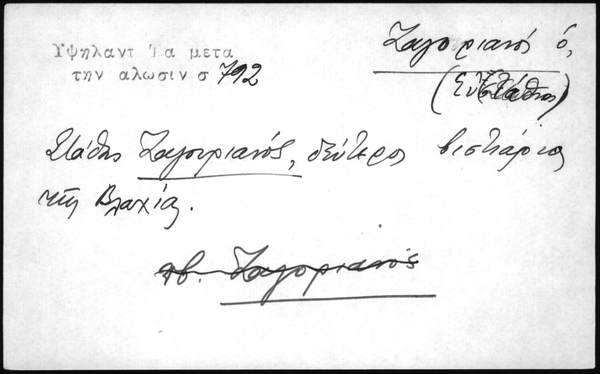 Υψηλαντ Τα μετα
την αλωσιν σ 792
Ζαγοριανός ὁ,
(Εὐστάθιος)
Στάθης Ζαγοριανός, δεύτερος βιστιάριος
τῆς Βλαχίας.
πβ. Ζαγοριανός